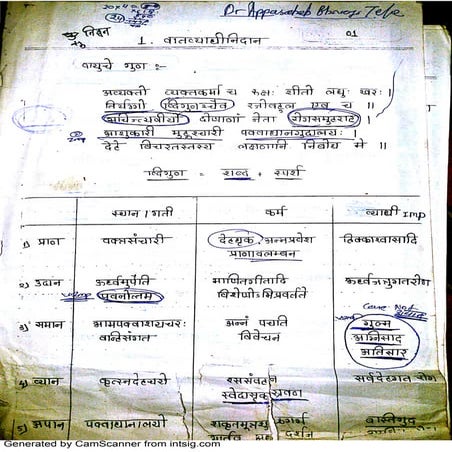 Dr Appasaheb Bhavraj Tele
निदान
01
1. वातव्याधीनिदान
वायुचे गुण :-
अव्यक्तो व्यक्तकर्मा च रुक्षः शीतो लघु खरः
तिर्यग्गो द्विगुणश्चैव रजोबहुल एव च ॥
अचिन्त्यवीर्यो दोषाणां नेता रोगसमूहराट्
आशुकारी मुहुश्चारी पक्वाधानगुदालयः
देहे विचरतस्तस्य लक्षणानि निबोध मे ॥
द्विगुण = शब्द + स्पर्श
स्थान / गती कर्म व्याधी Imp
1) प्राण वक्त्रसंचारी देहधृक, अन्नप्रवेश हिक्काश्वासादि
प्राणावलम्बन
2) उदान ऊर्ध्वमुपैति भाषितगीतादि ऊर्ध्वजत्रुगतरोग
पवनोत्तम
3) समान आमपक्वाशयचरः अन्नं पचति गुल्म
वह्निसंगत विवेचन अग्निसाद
अतिसार
4) व्यान कृत्स्नदेहचरो रससंवहन सर्वदेहगत रोग
स्वेदासृक स्रवण
5) अपान पक्वाधानालयो
Generated by CamScanner from intsig.com